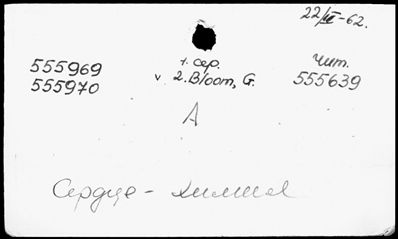 22/IX-62.
555969 1. сер. Чит.
555970 v 2. Bloom, G. 555639
A
Сердце - химия